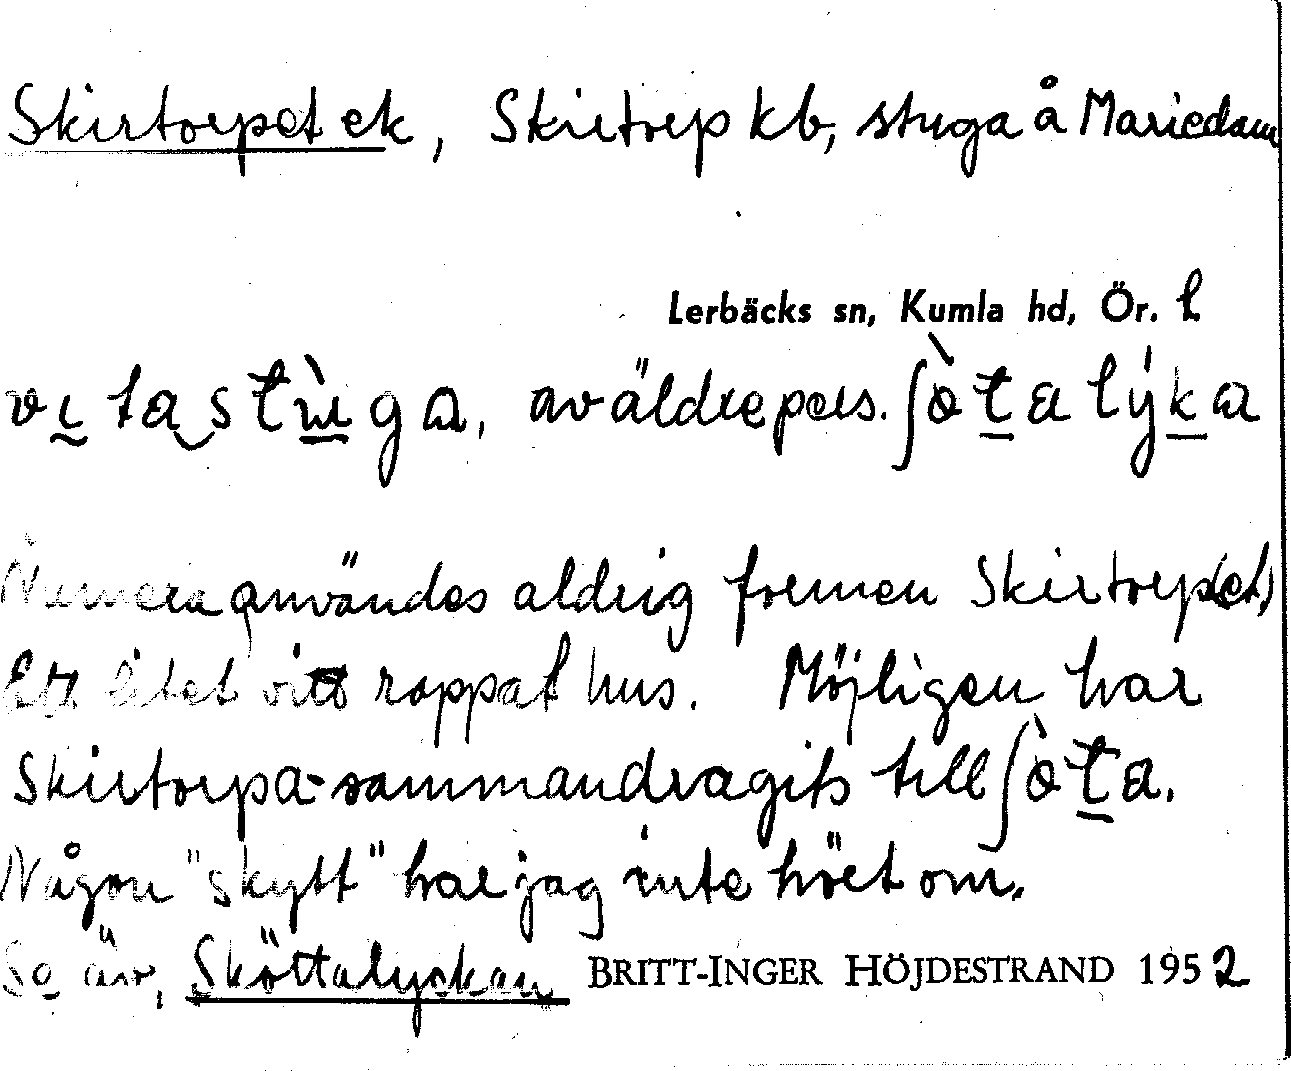 Skirtorpet ek, Skirtorp kb, stuga å Mariedam
Lerbäcks sn, Kumla hd, Ör. l
vɩtastùga, av äldre pers. ʃòtalýka
Numera användes aldrig formen Skirtorp(et)
Ett litet vitt rappat hus. Möjligen har
Skirtorpa- sammandragits till ʃòta.
Någon "skytt" har jag inte hört om.
Se äv. Sköttalyckan BRITT-INGER HÖJDESTRAND 1952